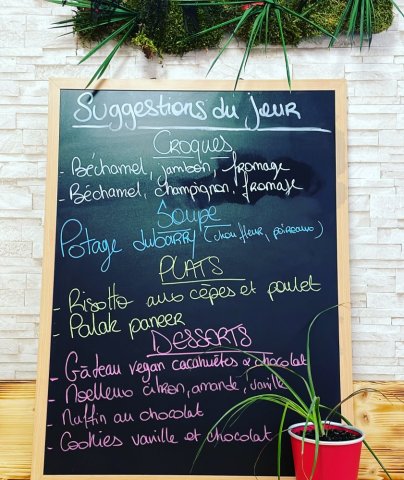 Suggestions du jour
Croques
- Béchamel, jambon, fromage
- Béchamel, champignon, fromage
Soupe
Potage dubarry (chou fleur, poireaux)
PLATS
- Risotto aux cèpes et poulet
- Palak paneer
DESSERTS
- Gâteau vegan cacahuètes & chocolat
- Moelleux citron, amande, vanille
- Muffin au chocolat
- Cookies vanille et chocolat